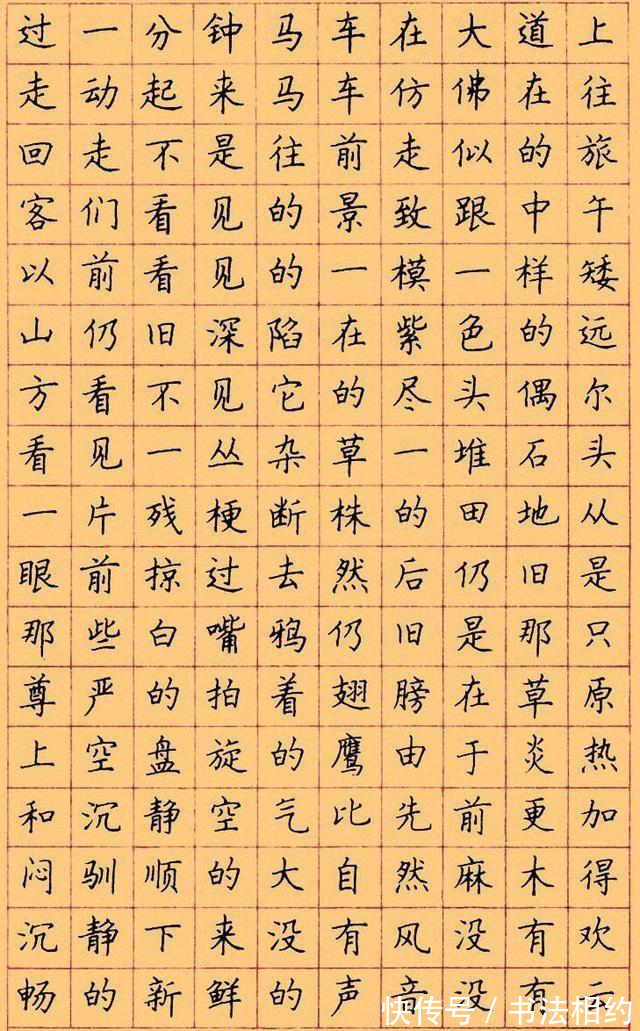 过一分钟马车在大道上
走动起来马车仿佛在往
回走不是往前走似的旅
客们看见的景致跟中午
以前看见的一模一样矮
山仍旧深陷在紫色的远
方看不见它的尽头偶尔
看见一丛杂草一堆石头
一片残梗断株的田地从
眼前掠过去然后仍旧是
那些白嘴鸦仍旧是那只
尊严的拍着翅膀在草原
上空盘旋的鹰由于炎热
和沉静空气比先前更加
闷驯顺的大自然麻木得
沉静下来没有风没有欢
畅的新鲜的声音没有云
快传号／书法相约